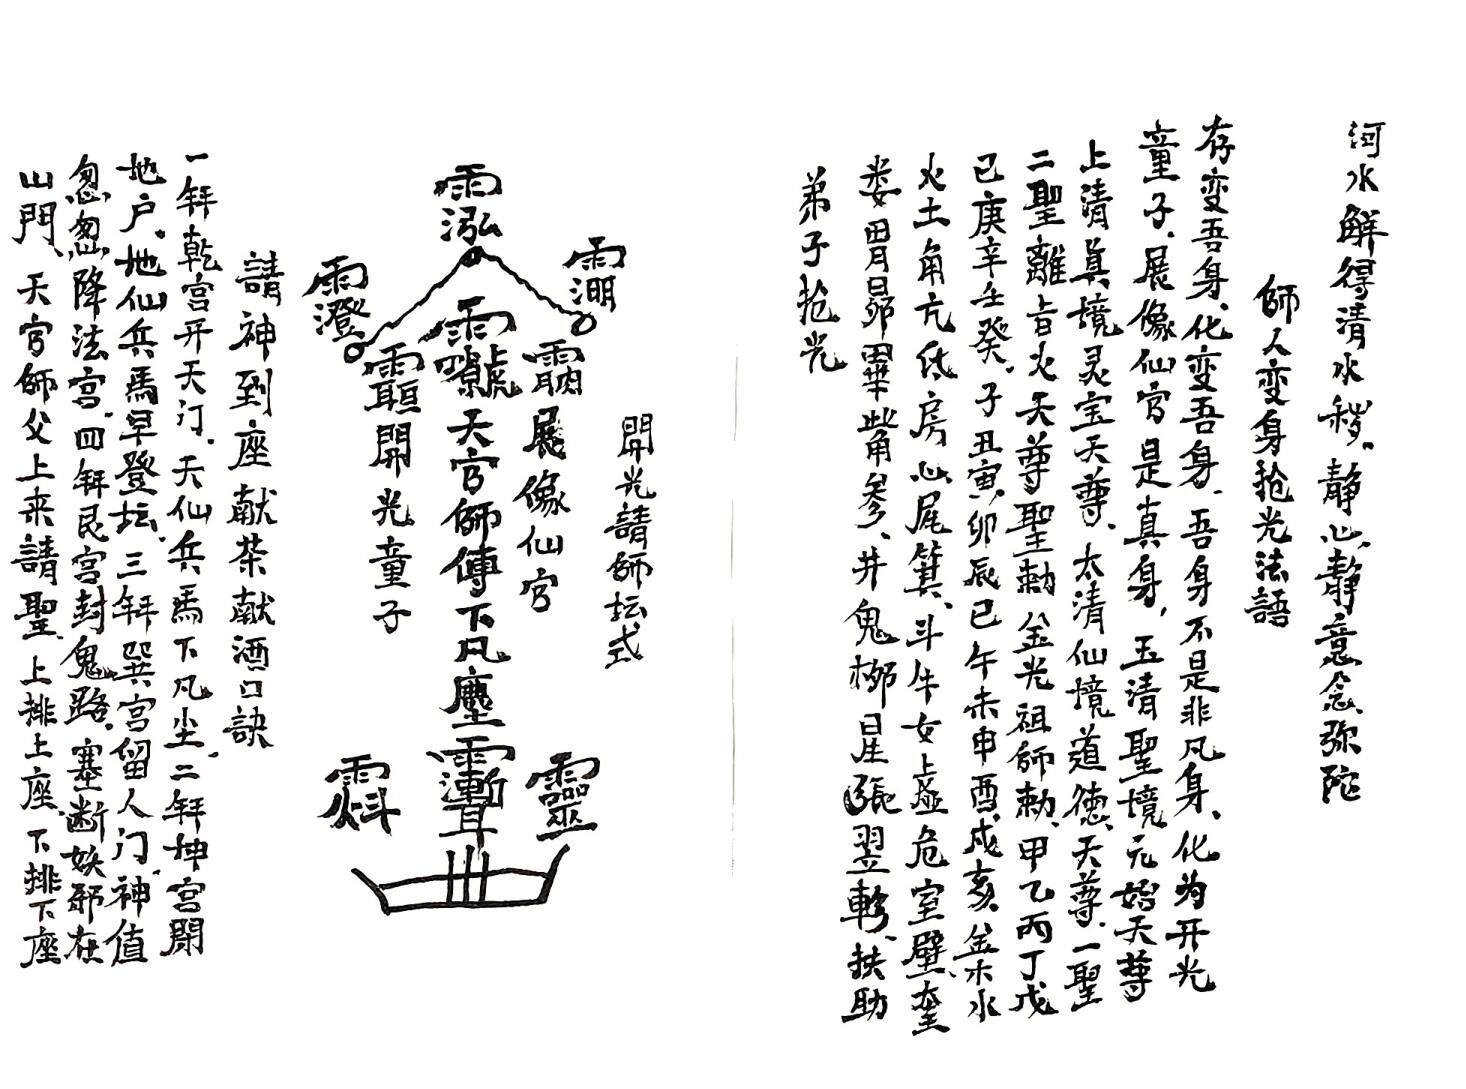 河水解得清水秽。静心静意念弥陀
師人变身抢光法語
存变吾身、化变吾身、吾身不是非凡身、化为开光
童子、展像仙官是真身，玉清聖境元始天尊
上清真境灵宝天尊、太清仙境道德天尊、一聖
二聖離旨火天尊聖勅金光祖師勅、甲乙丙丁戊
己庚辛壬癸、子丑寅卯辰巳午未申酉戌亥、金木水
火土角亢氐房心尾箕、斗牛女虚危室壁、奎
娄胃昴畢觜参、井鬼柳星張翌軫、扶助
弟子抢光
開光請師坛式
展像仙官
天官師傅下凡塵
開光童子
靈
請神到座献茶献酒口訣
一
乾宫开天门、天仙兵馬下凡尘、二
坤宫開
地户、地仙兵馬早登坛、三
巽宫留人门、神值
忽忽降法宫、四
艮宫封鬼路、塞断妖邪在
山門、天官師父上来請聖、上排上座、下排下座